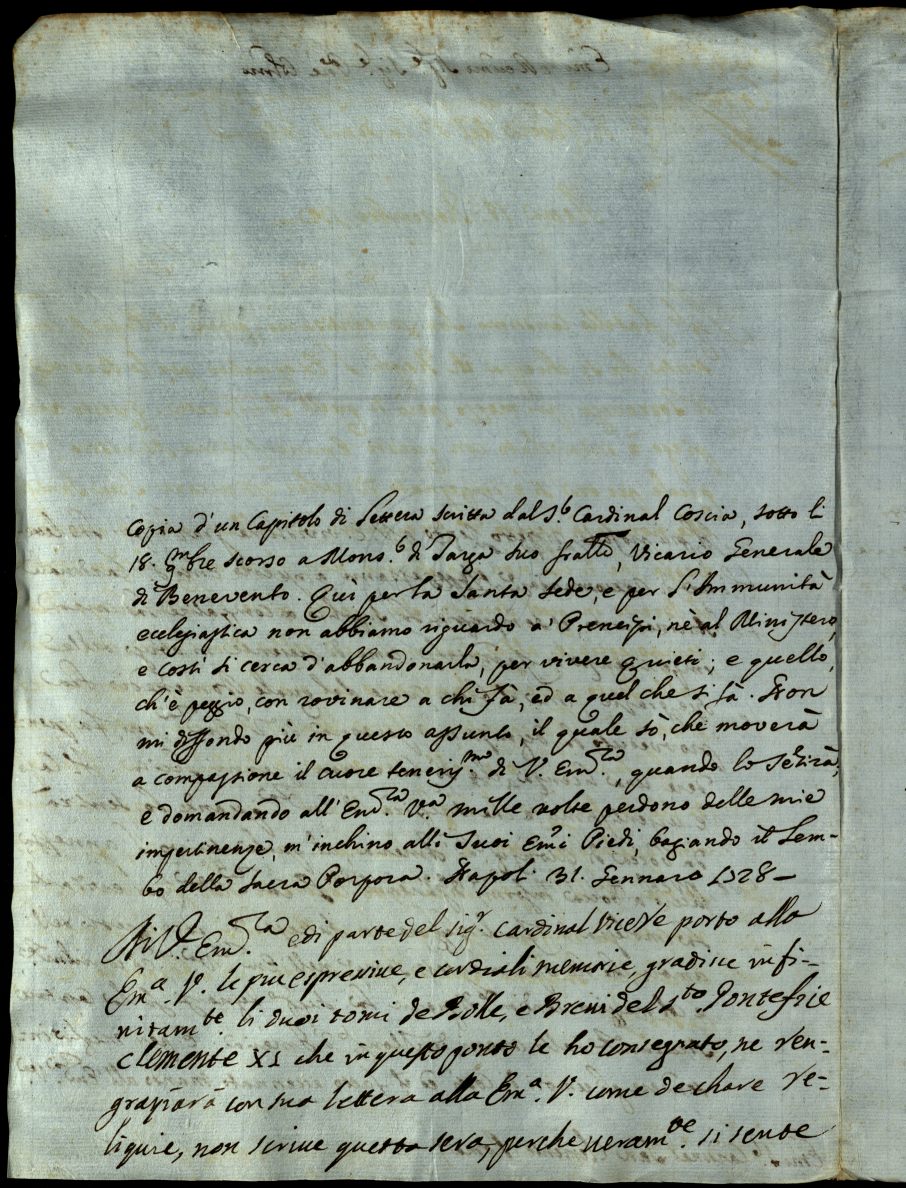 Copia d'un Capitolo di Lettera scritta dal S.r Cardinal Coscia, sotto li
18. 9mbre scorso a Mons.r di Targa suo fratello, Vicario Generale
di Benevento. Quì per la Santa Sede, e per l'Immunità
ecclesiastica non abbiamo riguardo a' Prencipi, nè al Ministero,
e costì si cerca d'abbandonarla, per vivere quieti; e quello,
ch'è peggio, con rovinare a chi fà, ed a quel che si fà. Non
mi diffondo più in questo assunto, il quale sò, che moverà
a compassione il cuore teneriss.mo di V. Em.za, quando lo sentirà,
e domandando all'Em.za V.a mille volte perdono delle mie
impertinenze, m'inchino alli Suoi Em.i Piedi, baciando il Lem-
bo della Sacra Porpora. Napoli 31. Gennaro 1728 —
Di V. Em.za
e di parte del Sig.r Cardinal Vice Re porto alla
Em.a V. le più espressive, e cordiali memorie, gradisce infi-
nitam.te li duoi tomi de Bolle, e Brevi del S.to Pontefice
Clemente XI che in questo ponto le ho consegnato, ne ren-
graziarà con sua lettera alla Em.a V. come de chare re-
liquie, non scrive questa sera, perche veram.te si sente